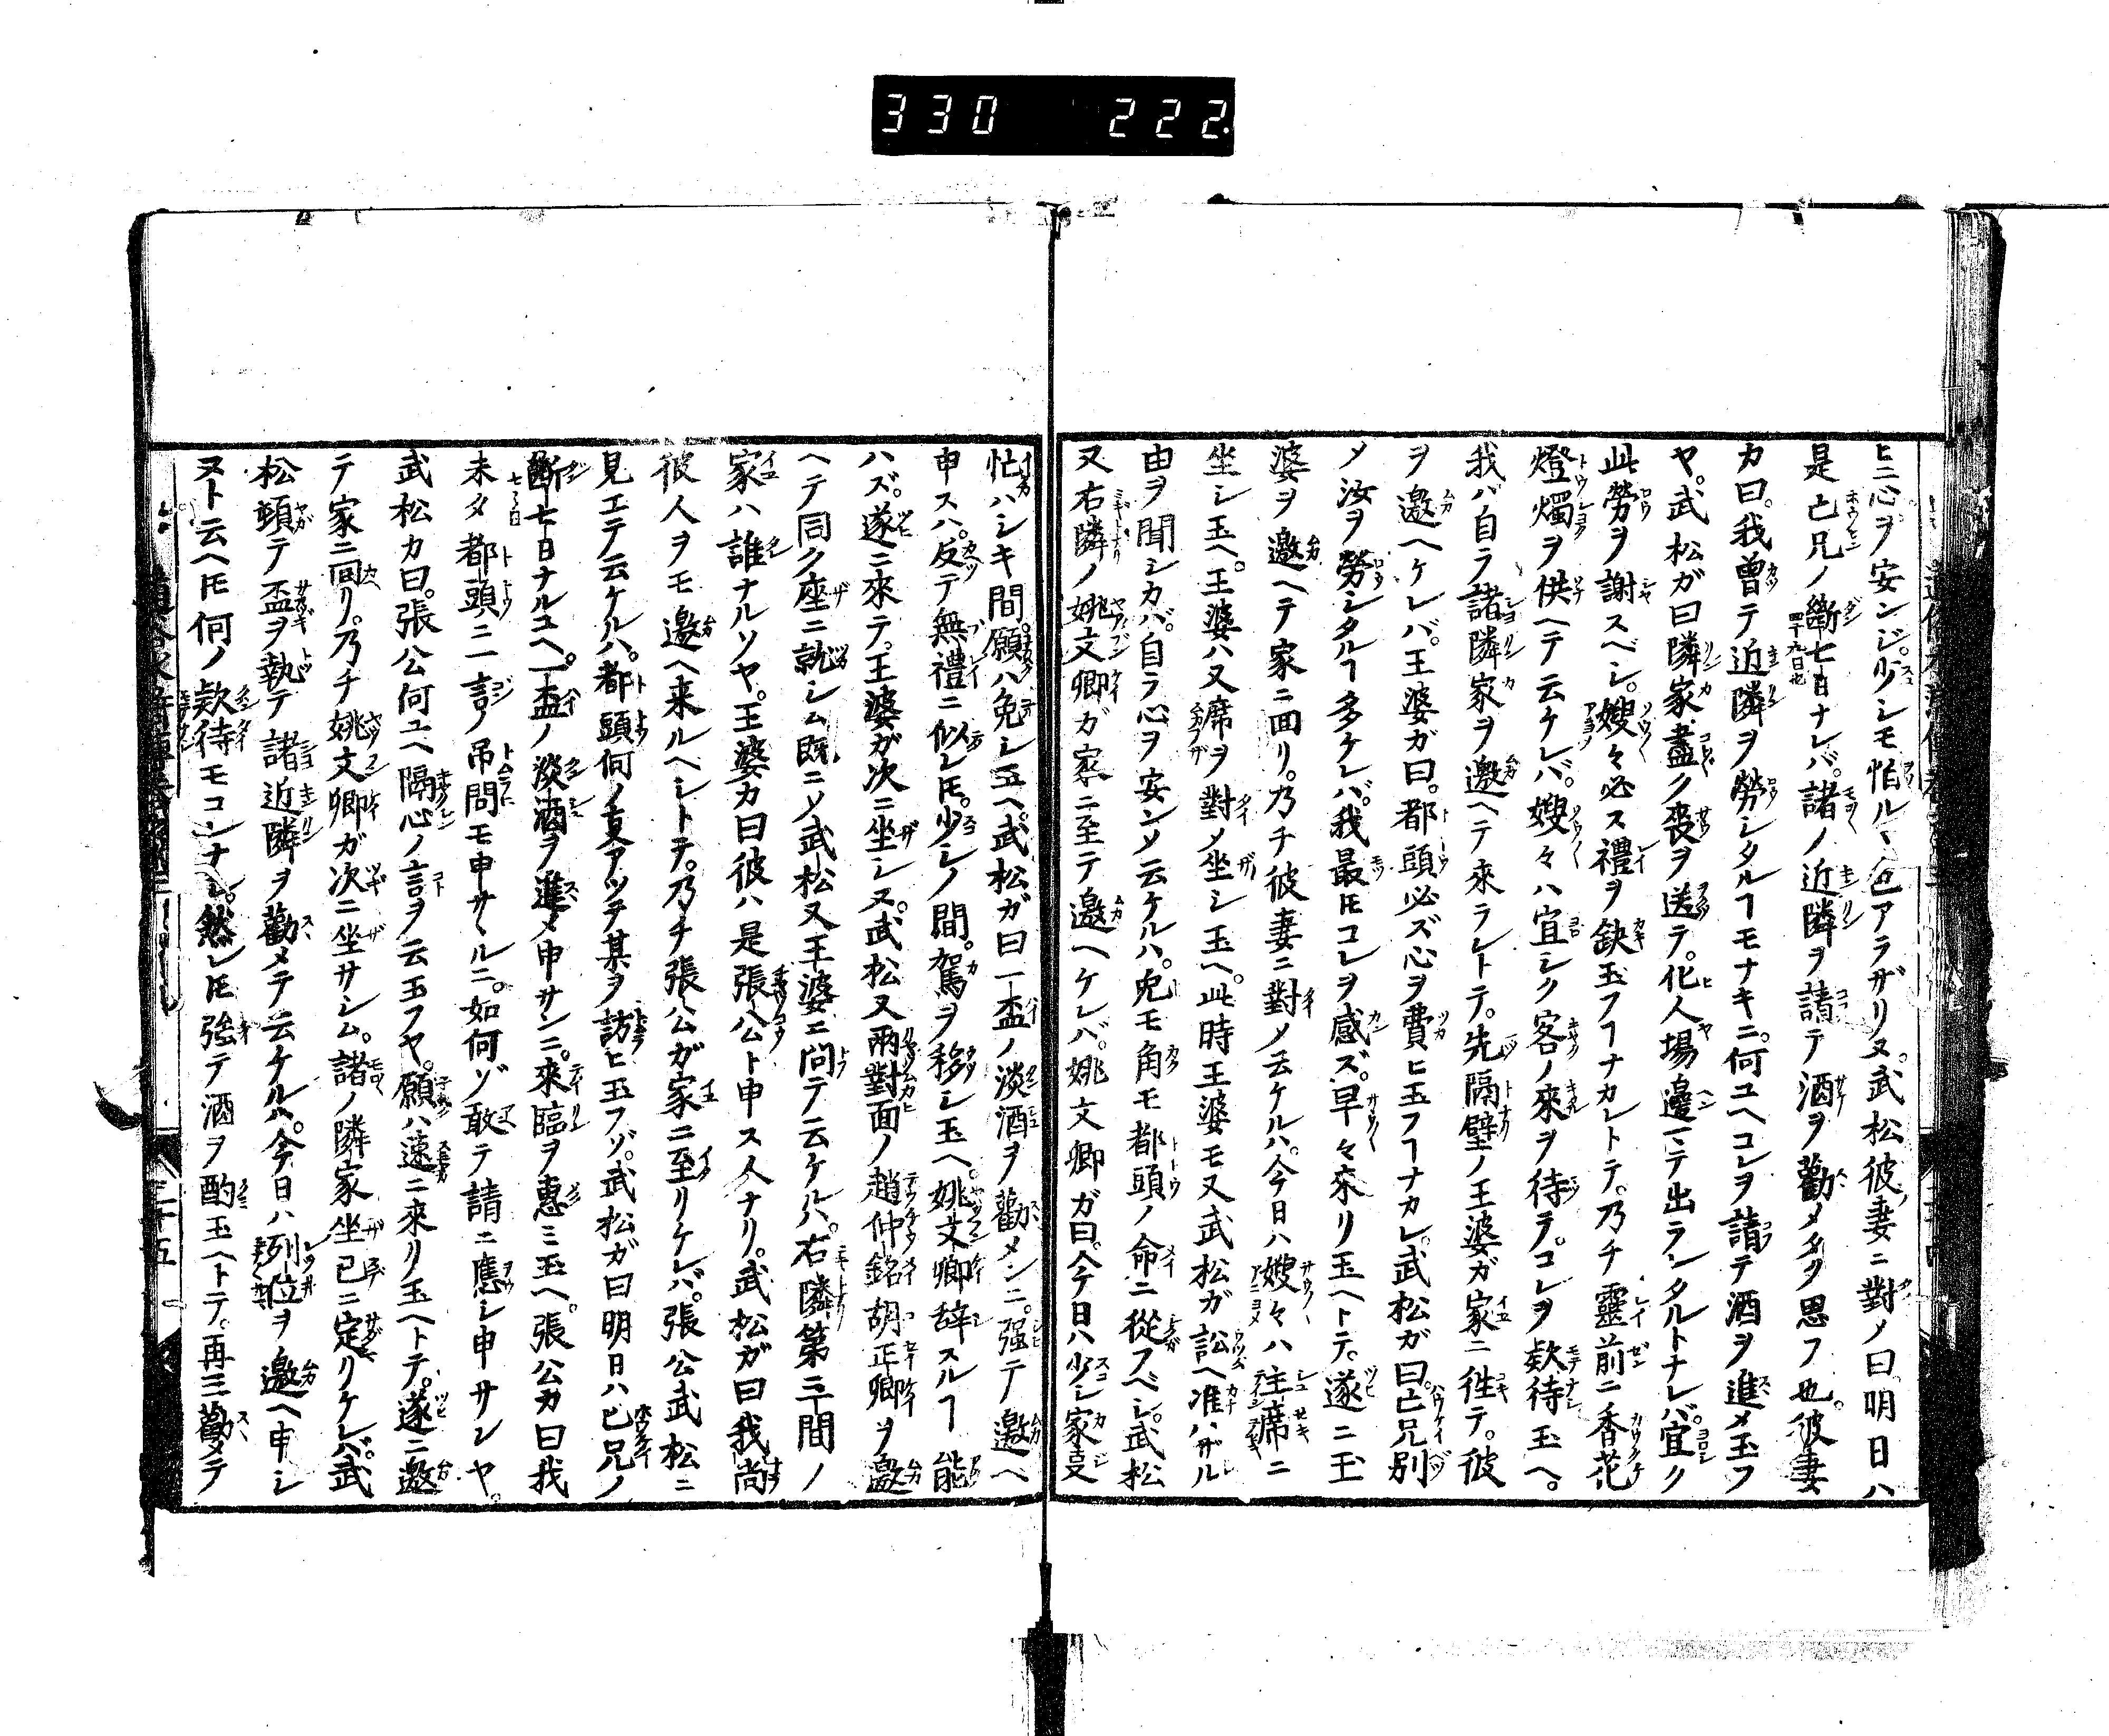 330 222
ヒニ心ヲ安ンジ。少シモ怕ルヽ色アラザリヌ。武松彼妻ニ對メ曰。明日ハ
是亡兄ノ斷七日ナレバ。諸ノ近隣ヲ請テ酒ヲ勸メタク思フ也。彼妻
カ曰。我曽テ近隣ヲ勞シタルヿモナキニ。何ユヘコレヲ請テ酒ヲ進メ玉フ
ヤ。武松ガ曰隣家盡ク喪ヲ送テ。化人場邊ニテ出ランタルトナレバ。宜ク
此勞ヲ謝スベシ。嫂々必ス禮ヲ缺玉フヿナカレトテ。乃チ靈前ニ香花
燈燭ヲ供ヘテ云ケレバ。嫂々ハ宜シク客ノ來ヲ待テ。コレヲ欵待玉ヘ。
我バ自ラ諸隣家ヲ邀ヘテ來ラレトテ。先隔壁ノ王婆ガ家ニ徃テ。彼
ヲ邀ヘケレバ。王婆ガ曰。都頭必ズ心ヲ費ヒ玉フヿナカレ。武松ガ曰。亡兄別
メ汝ヲ勞シタルヿ多ケレバ。我最𪜈コレヲ感ズ。早々來リ玉ヘトテ。遂ニ王
婆ヲ邀ヘテ家ニ回リ。乃チ彼妻ニ對メ云ケルハ。今日ハ嫂々ハ主席ニ
坐シ玉ヘ。王婆ハ又席ヲ對メ坐シ玉ヘ。此時王婆モ又武松ガ訟ヘ准ハザル
由ヲ聞シカバ。自ラ心ヲ安ンメ云ケルハ。兎モ角モ都頭ノ命ニ從フベシ。武松
又右隣ノ姚文卿ガ家ニ至テ邀ヘケレバ。姚文卿ガ曰。今日ハ少シ家叓
忙ハシキ間。願ハ免シ玉ヘ。武松ガ曰一盃ノ淡酒ヲ勸メンニ。强テ邀ヘ
申スハ。反テ無禮ニ似レ𪜈。少シノ間。駕ヲ移シ玉ヘ。姚文卿辞スルヿ能
ハズ。遂ニ來テ。王婆ガ次ニ坐シヌ。武松又兩對面ノ趙仲銘胡正卿ヲ邀
ヘテ同ク座ニ就シム既ニメ武松又王婆ニ問テ云ケルハ。右隣第三間ノ
家ハ誰ナルソヤ。王婆カ曰彼ハ是張公ト申ス人ナリ。武松ガ曰我尚
彼人ヲモ邀ヘ来ルヘシトテ。乃チ張公ガ家ニ至リケレバ。張公武松ニ
見エテ云ケルハ。都頭何ノ叓アツテ某ヲ訪ヒ玉フゾ。武松ガ曰明日ハ亡兄ノ
斷七日ナルユヘ。一盃ノ淡酒ヲ進メ申サンニ。來臨ヲ惠ミ玉ヘ。張公カ曰我
未タ都頭ニ一言ノ吊問モ申サヽルニ。如何ゾ敢テ請ニ應シ申サンヤ。
武松カ曰。張公何ユヘ隔心ノ言ヲ云玉フヤ。願ハ速ニ來リ玉ヘトテ。遂ニ邀
テ家ニ回リ。乃チ姚文卿ガ次ニ坐サシム。諸ノ隣家坐已ニ定リケレバ。武
松頓テ盃ヲ執テ諸近隣ヲ勸メテ云ケルハ。今日ハ列位ヲ邀ヘ申シ
ヌト云ヘ𪜈何ノ欵待モコレナシ。然レ𪜈強テ酒ヲ酌玉ヘトテ。再三勸メテ
三十五